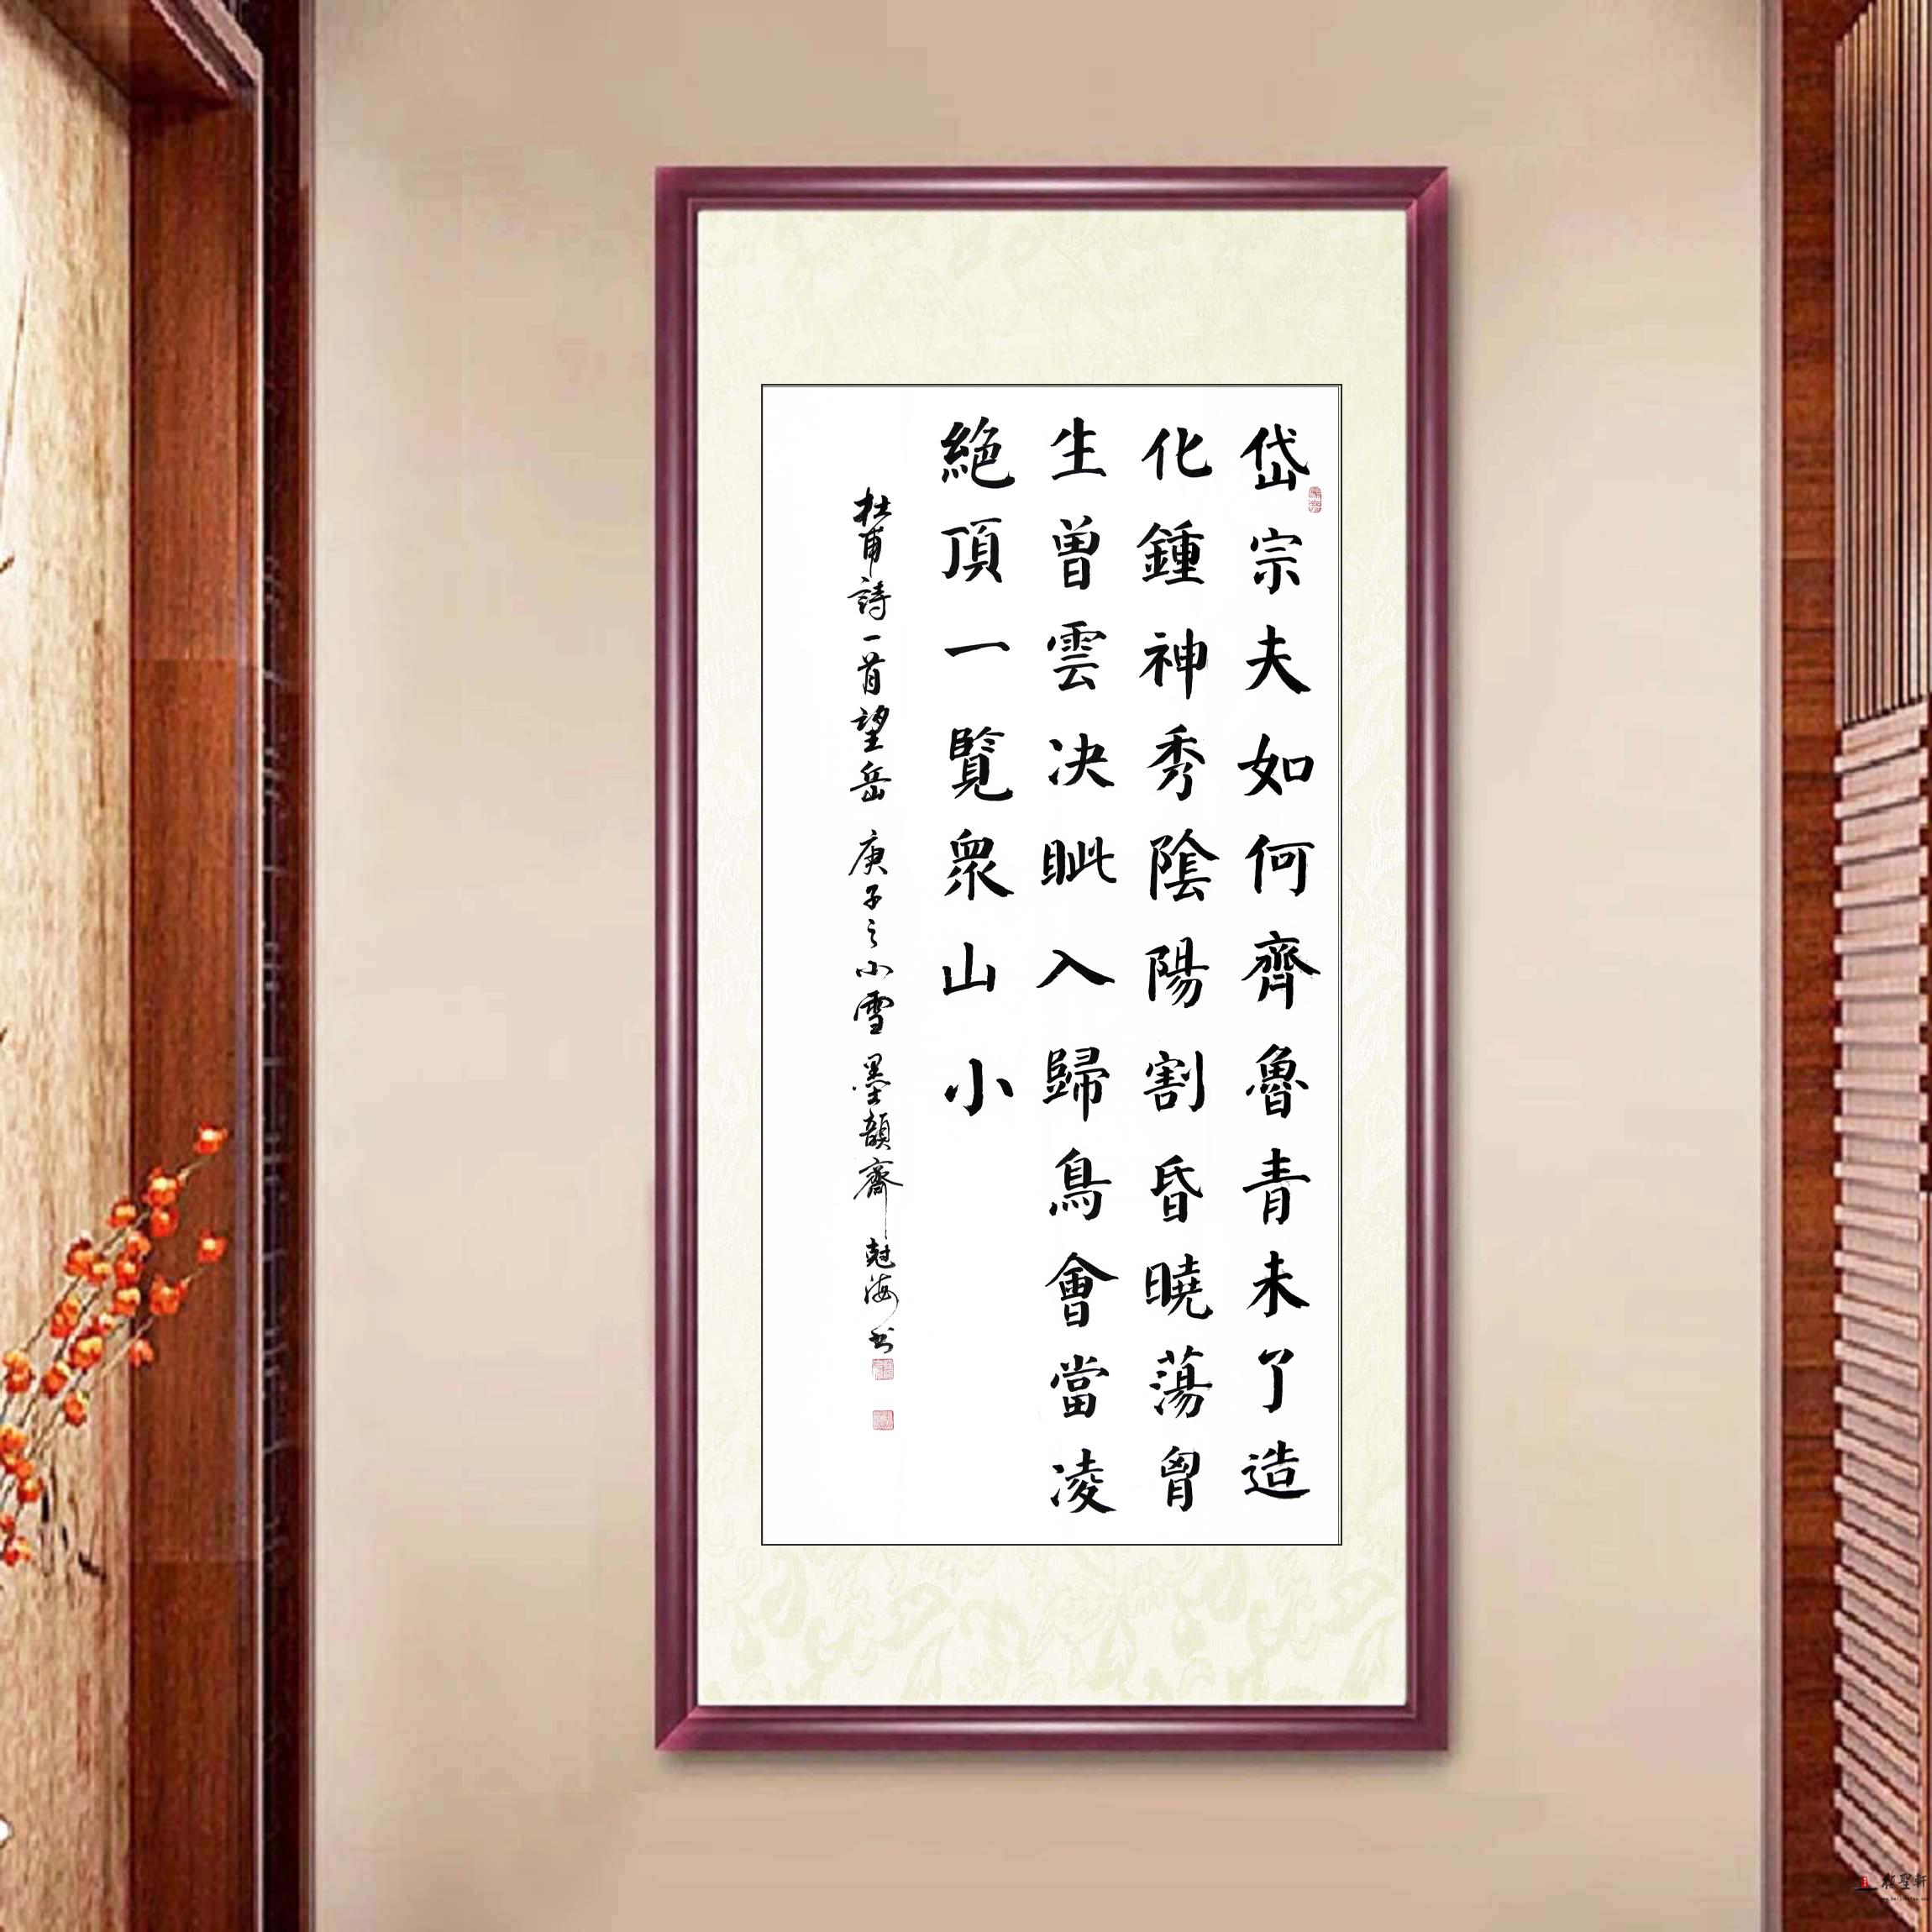 岱宗夫如何齊魯青未了造
化鍾神秀陰陽割昏曉蕩胷
生曽雲決眦入歸鳥會當凌
絕頂一覽眾山小
杜甫詩一首望岳 庚子之小雪 墨韻齋 克海书